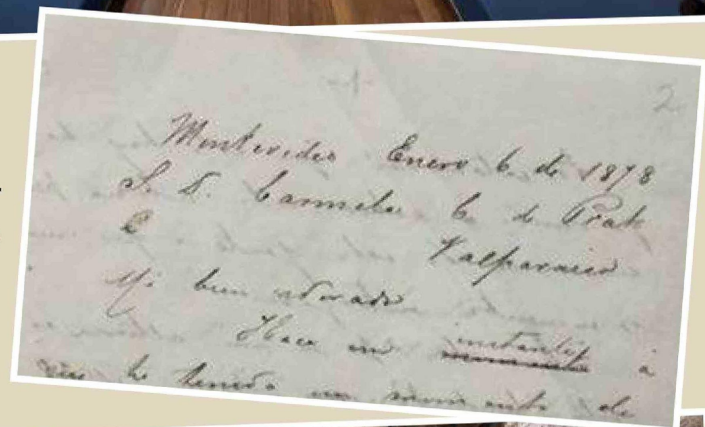 2
Montevideo Enero 6 de 1878
S. D. Carmela C. de Prat
Valparaiso
Mi bien adorado
Hace un instante á
que he tenido un momento de